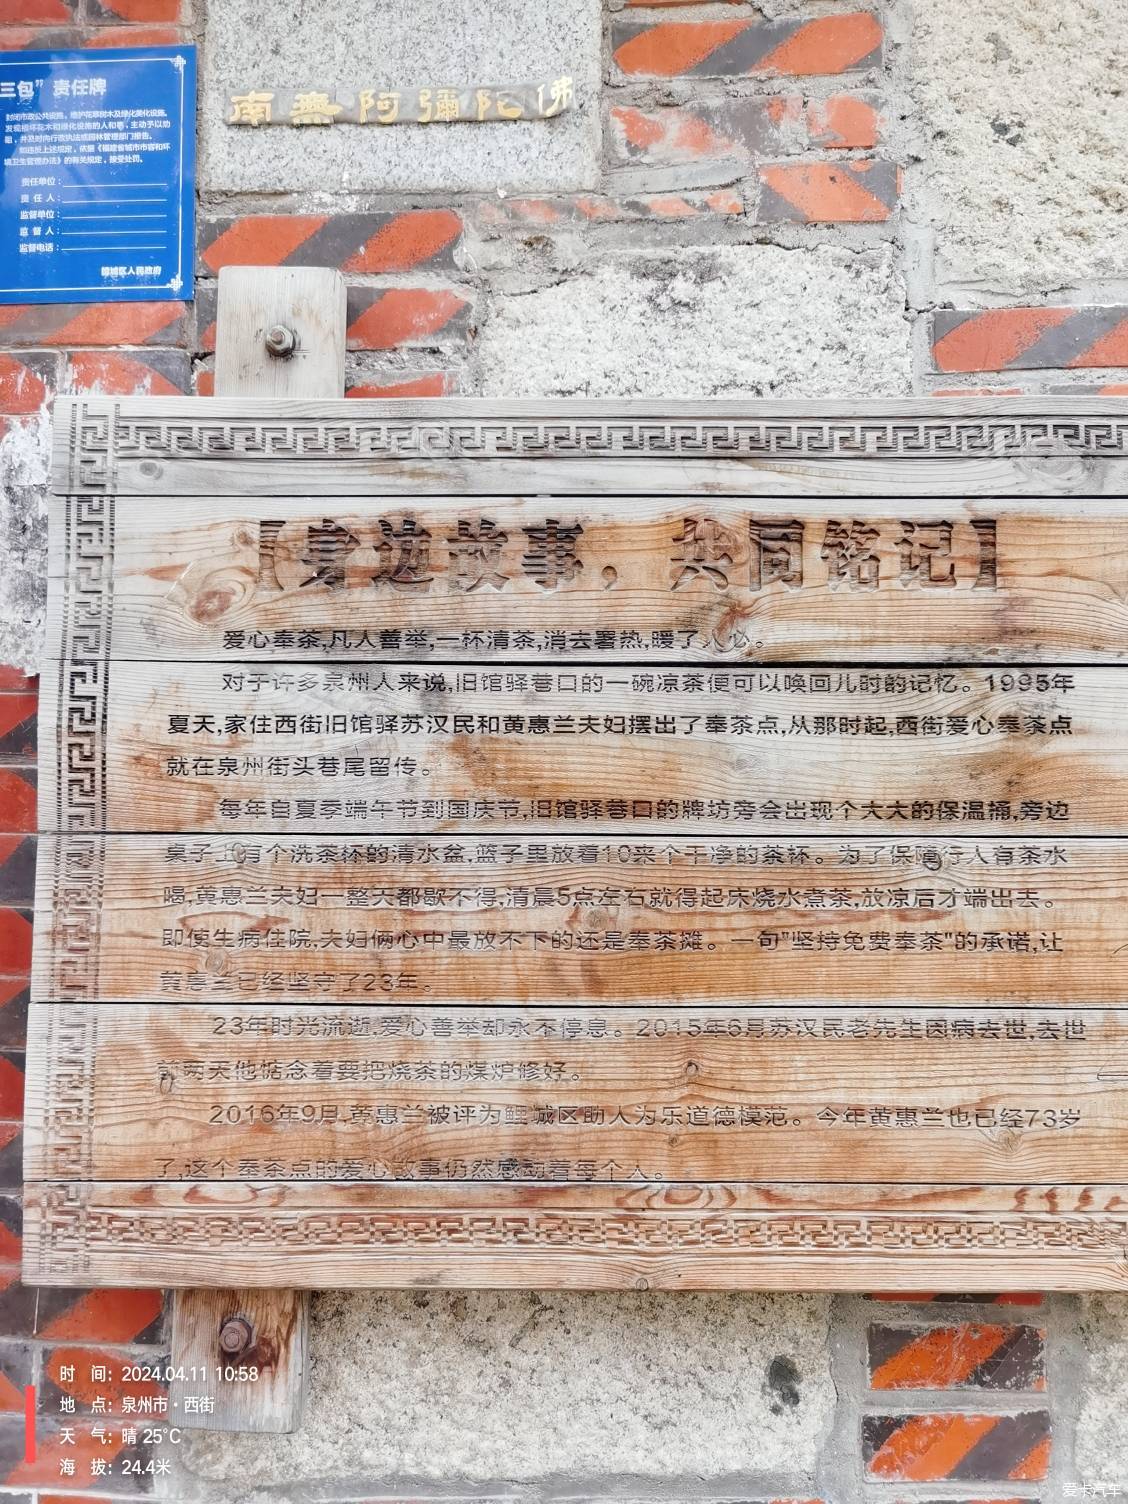 三包”责任牌
责任单位：
责 任 人：
监督单位：
监 督 人：
监督电话：
鲤城区人民政府
南無阿彌陀佛
【身边故事，共同铭记】
爱心奉茶,凡人善举,一杯清茶,消去署热,暖了人心。
对于许多泉州人来说,旧馆驿巷口的一碗凉茶便可以唤回儿时的记忆。1995年
夏天,家住西街旧馆驿苏汉民和黄惠兰夫妇摆出了奉茶点,从那时起,西街爱心奉茶点
就在泉州街头巷尾留传。
每年自夏季端午节到国庆节,旧馆驿巷口的牌坊旁会出现个大大的保温桶,旁边
桌子上有个洗茶杯的清水盆,篮子里放着10来个干净的茶杯。为了保障行人有茶水
喝,黄惠兰夫妇一整天都歇不得,清晨5点左右就得起床烧水煮茶,放凉后才端出去。
即使生病住院,夫妇俩心中最放不下的还是奉茶摊。一句"坚持免费奉茶"的承诺,让
黄惠兰已经坚守了23年。
23年时光流逝,爱心善举却永不停息。2015年6月苏汉民老先生因病去世,去世
前两天他惦念着要把烧茶的煤炉修好。
2016年9月,黄惠兰被评为鲤城区助人为乐道德模范。今年黄惠兰也已经73岁
了,这个奉茶点的爱心故事仍然感动着每个人。
时 间：2024.04.11 10:58
地 点：泉州市·西街
天 气：晴 25°C
海 拔：24.4米
爱卡汽车